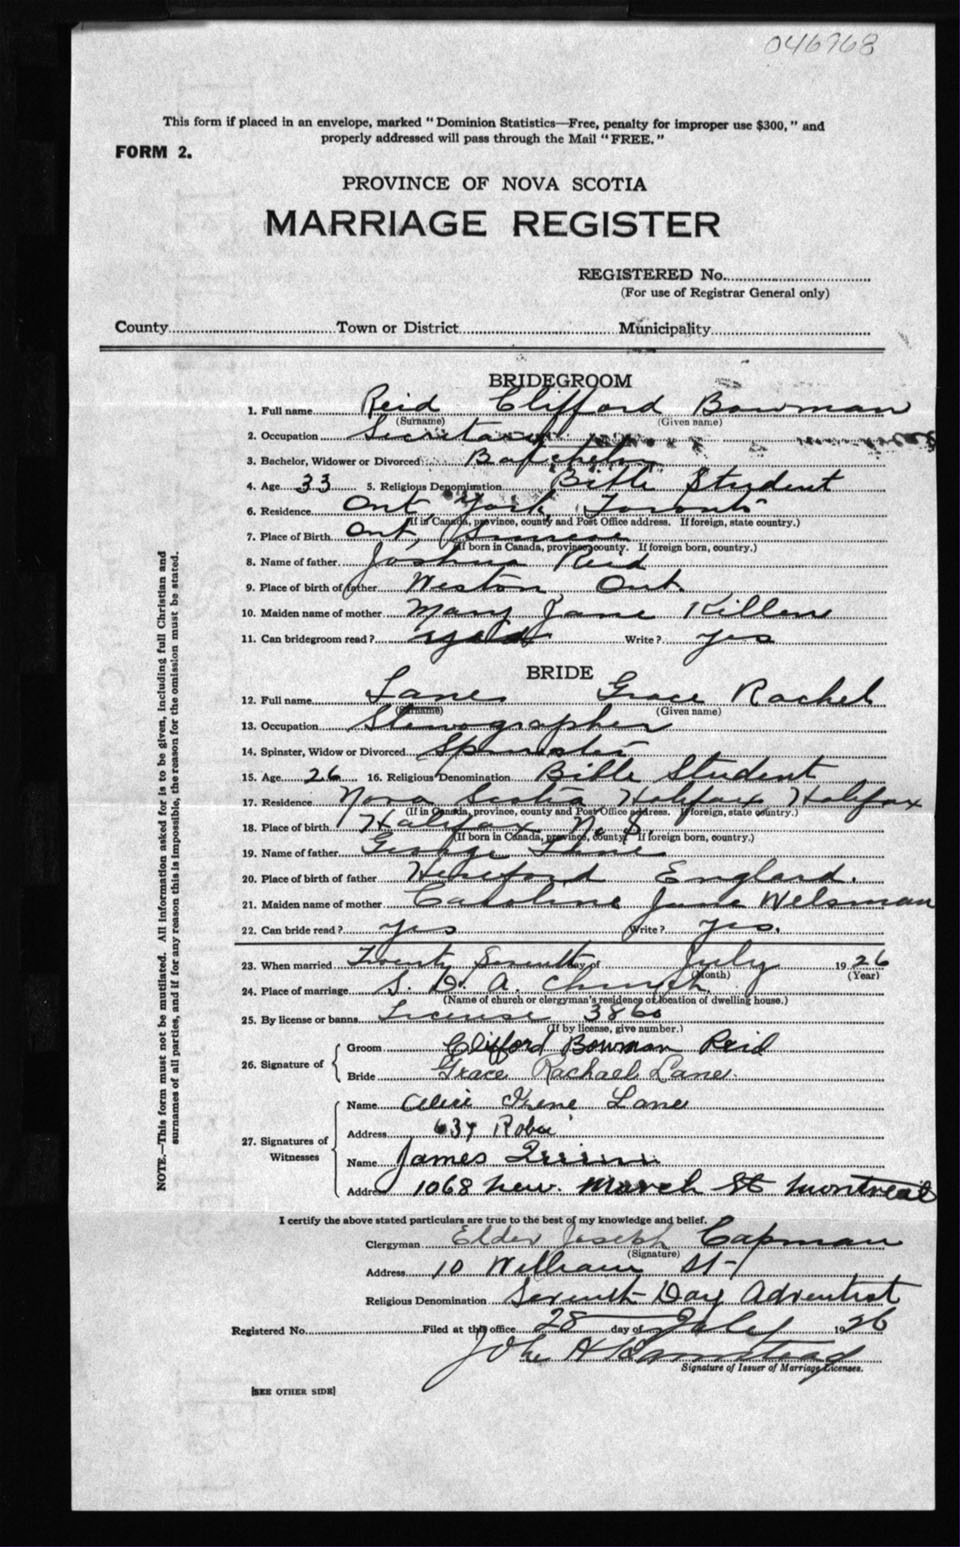 046968
This form if placed in an envelope, marked "Dominion Statistics—Free, penalty for improper use $300," and
properly addressed will pass through the Mail "FREE."
FORM 2.
PROVINCE OF NOVA SCOTIA
MARRIAGE REGISTER
REGISTERED No.
(For use of Registrar General only)
County Town or District Municipality
BRIDEGROOM
1. Full name Reid Clifford Bowman
(Surname) (Given name)
2. Occupation Secretary
3. Bachelor, Widower or Divorced Batchelor
4. Age 33 5. Religious Denomination Bible Student
6. Residence Ont, York, Toronto
(If in Canada, province, county and Post Office address. If foreign, state country.)
7. Place of Birth Ont, Simcoe
(If born in Canada, province, county. If foreign born, country.)
8. Name of father Joshua Reid
9. Place of birth of father Weston Ont
10. Maiden name of mother Mary Jane Killen
11. Can bridegroom read? yes Write? yes
BRIDE
12. Full name Lane Grace Rachel
(Surname) (Given name)
13. Occupation Stenographer
14. Spinster, Widow or Divorced Spinster
15. Age 26 16. Religious Denomination Bible Student
17. Residence Nova Scotia Halifax Halifax
(If in Canada, province, county and Post Office address. If foreign, state country.)
18. Place of birth Halifax N. S.
(If born in Canada, province, county. If foreign born, country.)
19. Name of father George Lane
20. Place of birth of father Hereford England.
21. Maiden name of mother Caroline Jane Welsman
22. Can bride read? yes Write? yes.
23. When married Twenty Seventh day of July 1926
(Month) (Year)
24. Place of marriage S. D. A. Church
(Name of church or clergyman's residence or location of dwelling house.)
25. By license or banns License 3860
(If by license, give number.)
26. Signature of
Groom Clifford Bowman Reid
Bride Grace Rachael Lane.
27. Signatures of Witnesses
Name Alice Irene Lane
Address 637 Robie
Name James Quinn
Address 1068 St Montreal
I certify the above stated particulars are true to the best of my knowledge and belief.
Clergyman Elder Joseph Capman
(Signature)
Address 10 William St
Religious Denomination Seventh Day Adventist
Registered No. Filed at this office 28 day of July 1926
John
Signature of Issuer of Marriage Licenses.
[SEE OTHER SIDE]
NOTE.—This form must not be mutilated. All information asked for is to be given, including full Christian and
surnames of all parties, and if for any reason this is impossible, the reason for the omission must be stated.